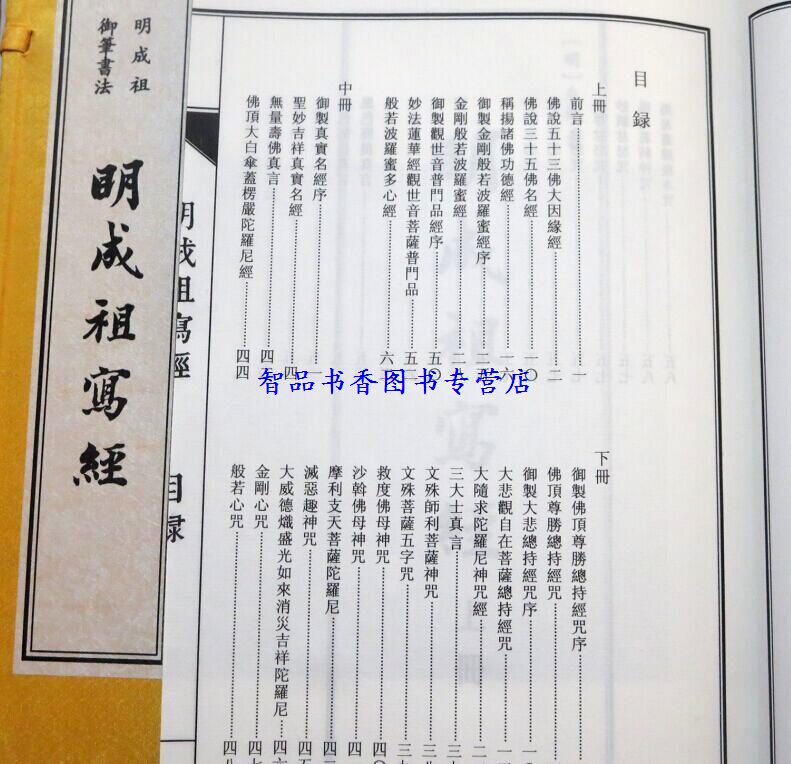 明成祖
御筆書法
明成祖寫經
明成祖寫經
目录
目録
上冊
前言……一
佛說五十三佛大因緣經……二
佛說三十五佛名經……一〇
稱揚諸佛功德經……一六
御製金剛般若波羅蜜經序……二五
金剛般若波羅蜜經……二
御製觀世音普門品經序……五〇
妙法蓮華經觀世音菩薩普門品……五二
般若波羅蜜多心經……六
中冊
御製真實名經序……一
聖妙吉祥真實名經……四
無量壽佛真言……四
佛頂大白傘蓋楞嚴陀羅尼經……四四
智品书香图书专营店
下冊
御製佛頂尊勝總持經咒序
佛頂尊勝總持經咒
御製大悲總持經咒序……一〇
大悲觀自在菩薩總持經咒……一
大隨求陀羅尼神咒經……二
三大士真言……三
文殊師利菩薩神咒……三八
文殊菩薩五字咒……三九
救度佛母神咒……四〇
沙斡佛母神咒……四
摩利支天菩薩陀羅尼……四二
滅惡趣神咒……四五
大威德熾盛光如來消災吉祥陀羅尼……四六
金剛心咒……四七
般若心咒……四八